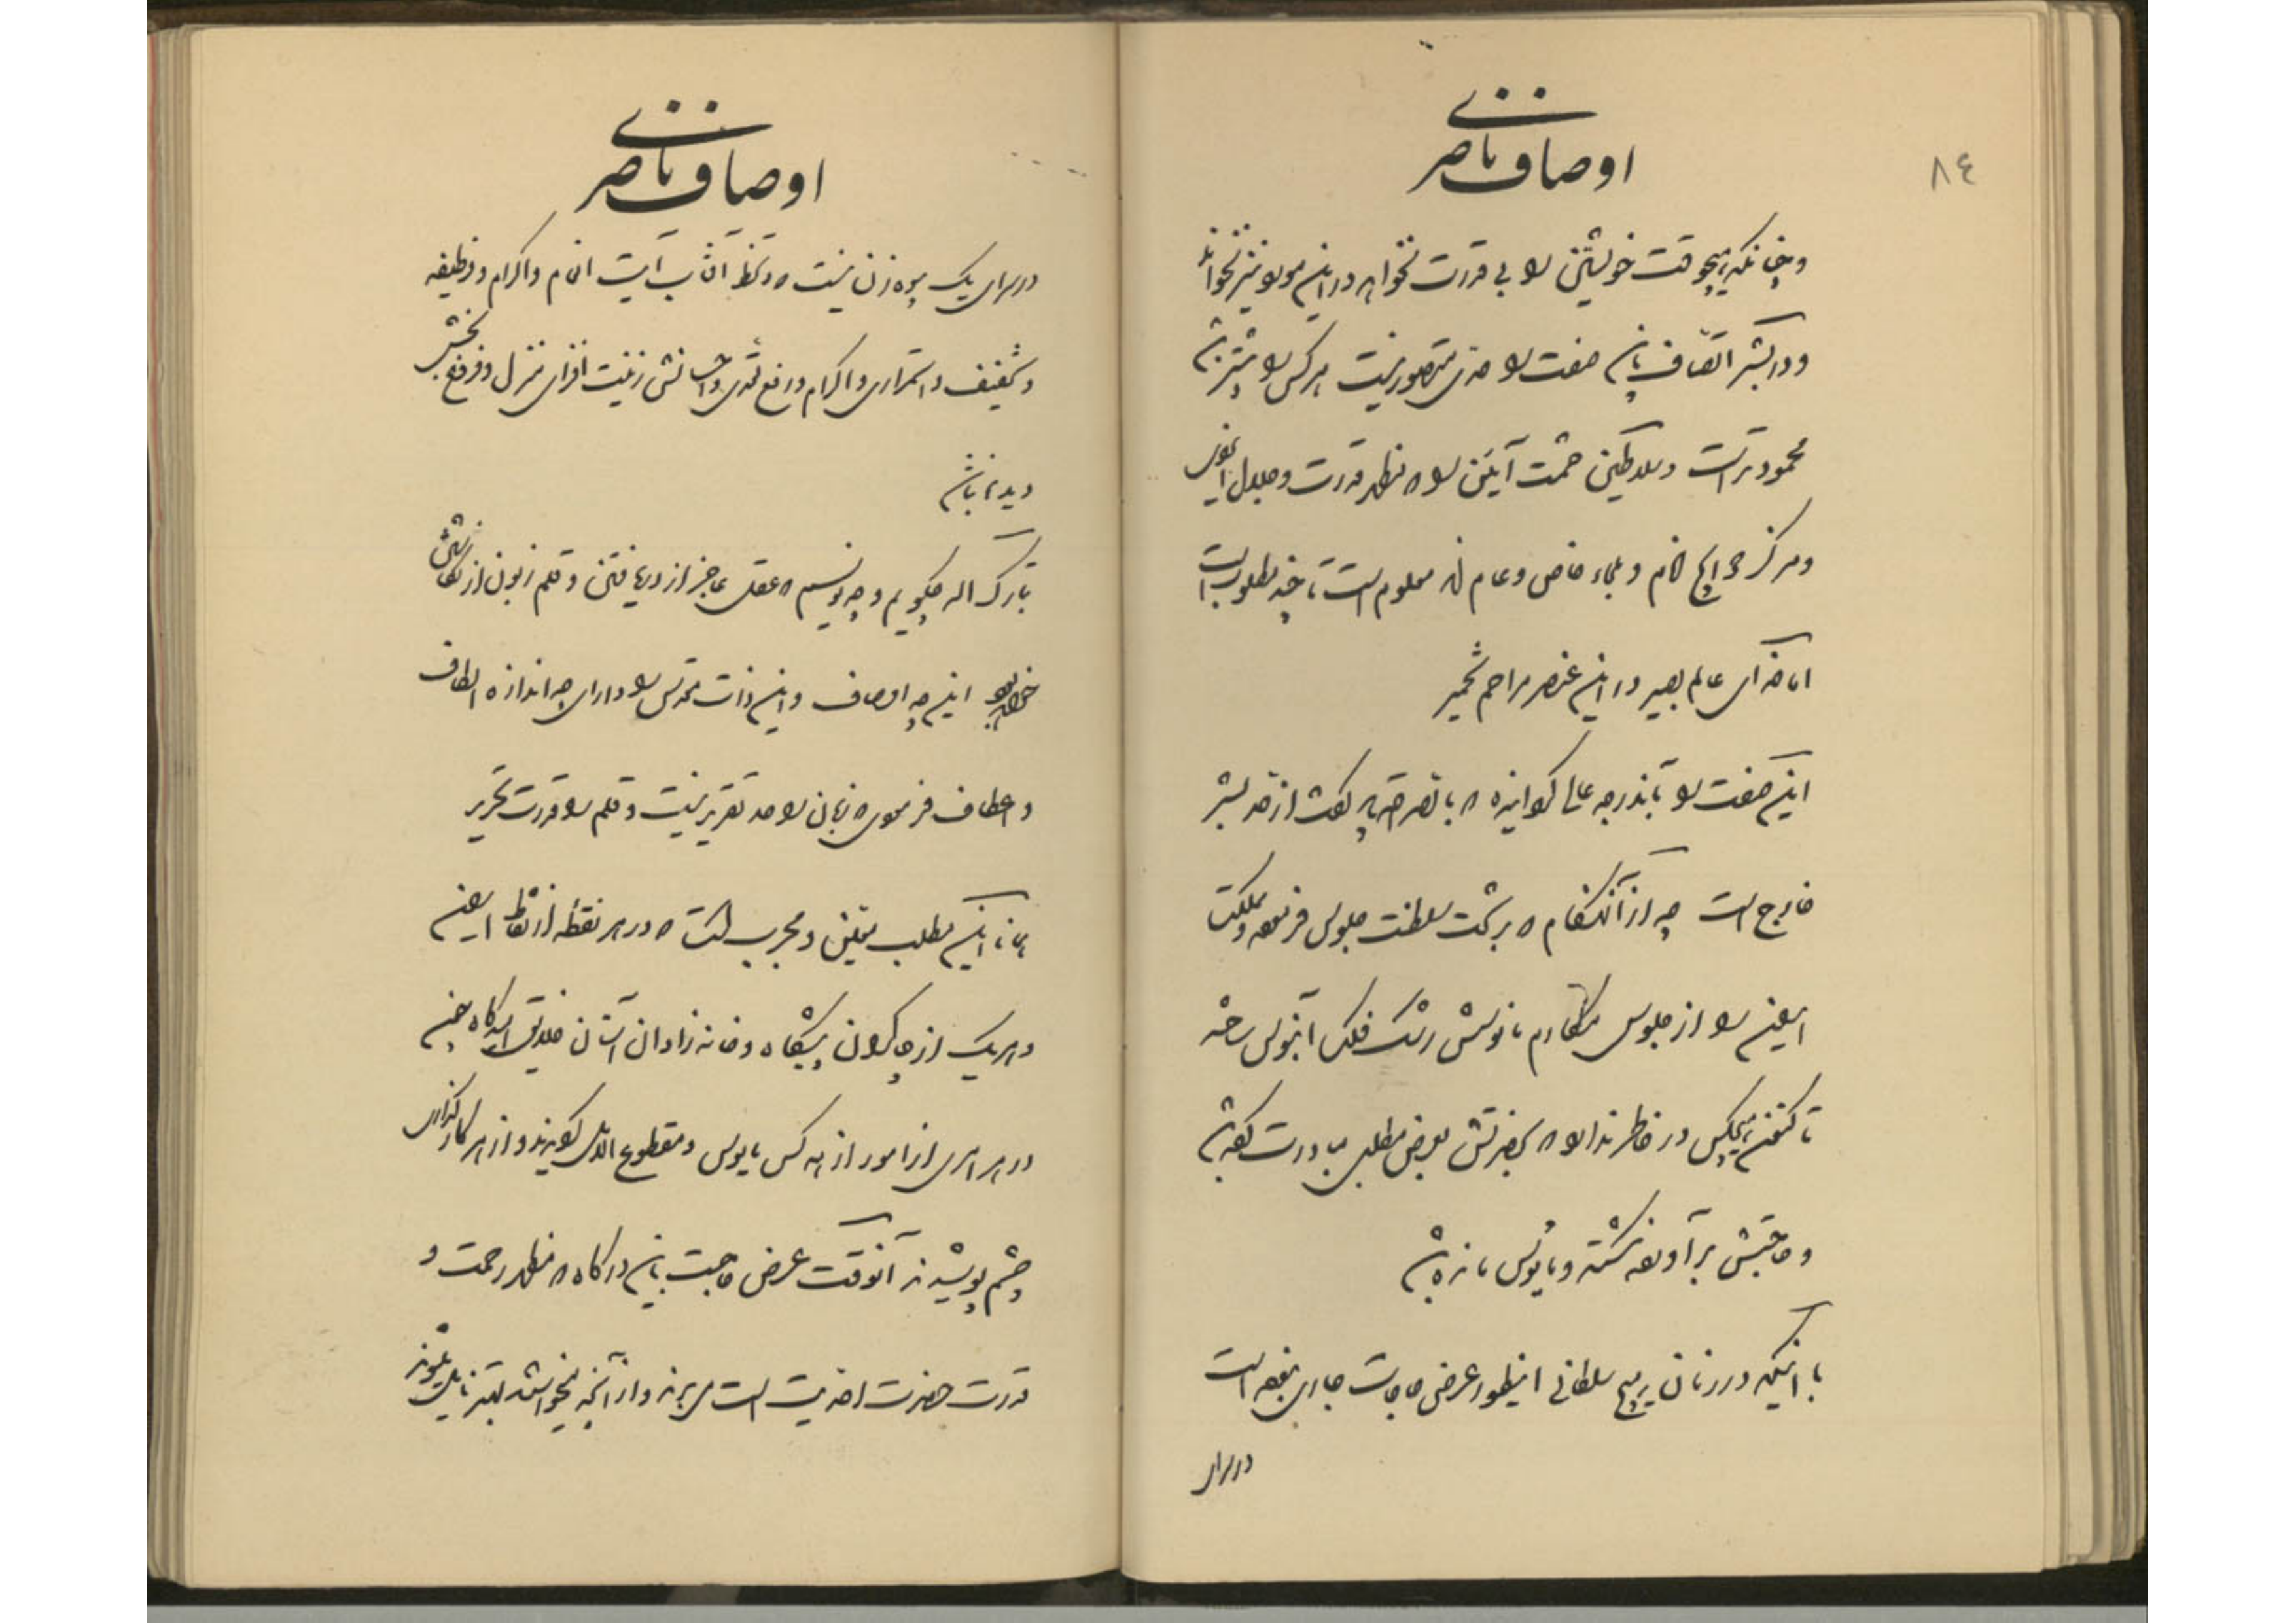 ٨٤
اوصاف ناصری
و چنانکه هیچوقت خویشتن را بی قدرت نخواهد در این مورد نیز نخواند
و در بشر اتصاف باین صفت را حدی متصور نیست هر کس را بیشتر باشد
محمودتر است و سلاطین حشمت آیین را که مظهر قدرت و جلال ایزدی
و مرکز حوایج انام و ملجاء خاص و عام اند معلوم است تا چند مطلوب است
اما خدای عالم بصیر در این عنصر مراحم تخمیر
این صفت را بآندرجه عالی گردانیده که با تصرحه باید گفت از حد بشر
خارج است چه از آنهنگام که بر تخت سلطنت جلوس فرموده و مملکت
ایران را از جلوس مکارم مانوسش رشک فلک آبنوس ساخته
تا کنون هیچکس در خاطر ندارد که بحضرتش بعرض مطلبی مبادرت گرفته باشد
و حاجتش برآورده نگشته و مایوس مانده باشد
با اینکه در زمان هیچ سلطانی اینطور عرض حاجات جاری نبوده است
در سرای
اوصاف ناصری
در سرای یک بیوه زن نیست که دستخط آفتاب آیت انعام و اکرام و وظیفه
و تخفیف و استمراری و اکرام و رفع تعدی و احسانش زینت افزای منزل و فروغ بخش
دیده نباشد
تبارک الله چگویم و چه نویسم که عقل عاجز از دریافتن و قلم زبون از نگاشتن
خداوند این چه اوصاف و این ذات مقدس را دارای چه اندازه الطاف
و اعطاف فرموده که زبان را حد تقریر نیست و قلم را قدرت تحریر
همانا این مطلب متیقن و مجرب است که در هر نقطه از نقاط ایران
و هر یک از چاکران پیشگاه و خانه زادان آستان خلایق امیدگاه چون
در هر امری از امور از همه کس مایوس و مقطوع الامل گویند و از هر کارگذاری
چشم پوشیدند آنوقت عرض حاجت باین درگاه که مظهر رحمت و
قدرت حضرت احدیت است می برند و از آنچه میخواستند بهتر نایل میشوند